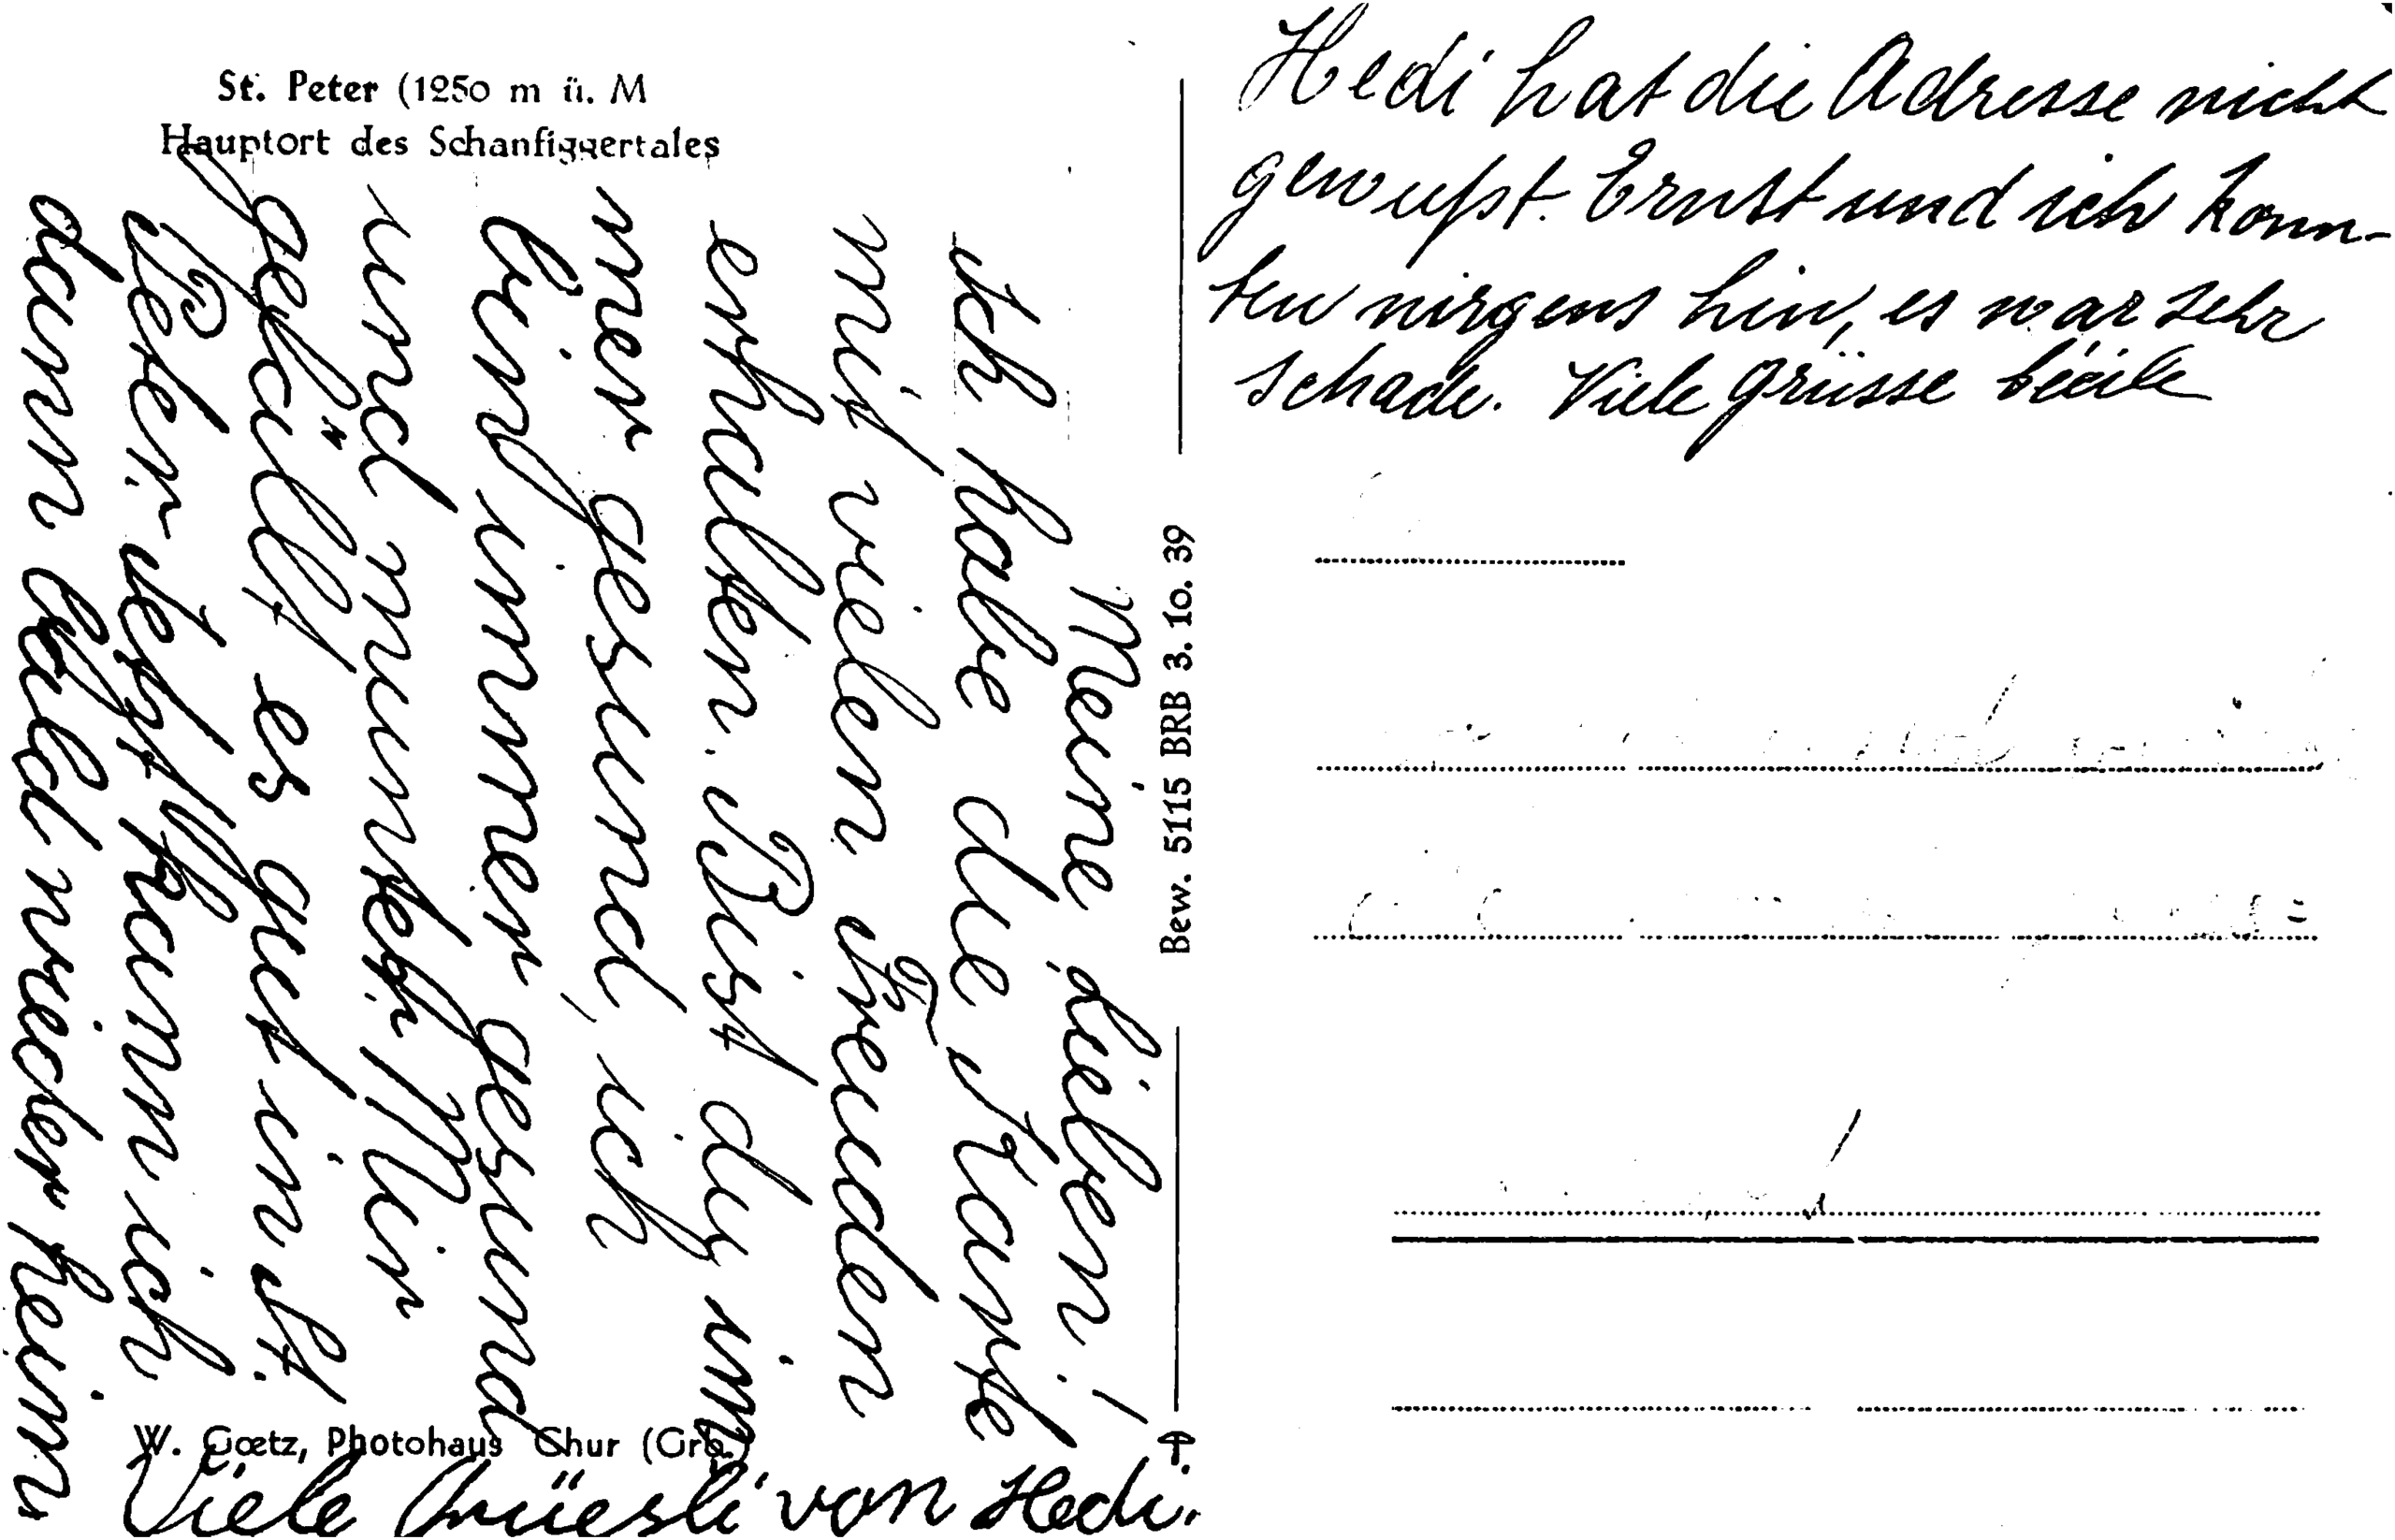 St. Peter (1250 m ü. M
Hauptort des Schanfiggertales
Meine Lieben!
Ich habe die Karte
mit vielen Freuden
erhalten. Bist du im
mer gesund, ich
bin immer gesund
und munter. Mir
gefällt es gut in St.
Peter. Jetzt kann ich
dann bald wieder heim
Viele Grüesli von Hedi.
W. Gœtz, Photohaus Chur (Grb.)
Bew. 5115 BRB 3. 10. 39
Hedi hat die Adresse nicht
gewußt. Ernst und ich konn-
ten nirgens hin, es war sehr
schade. Viele grüsse